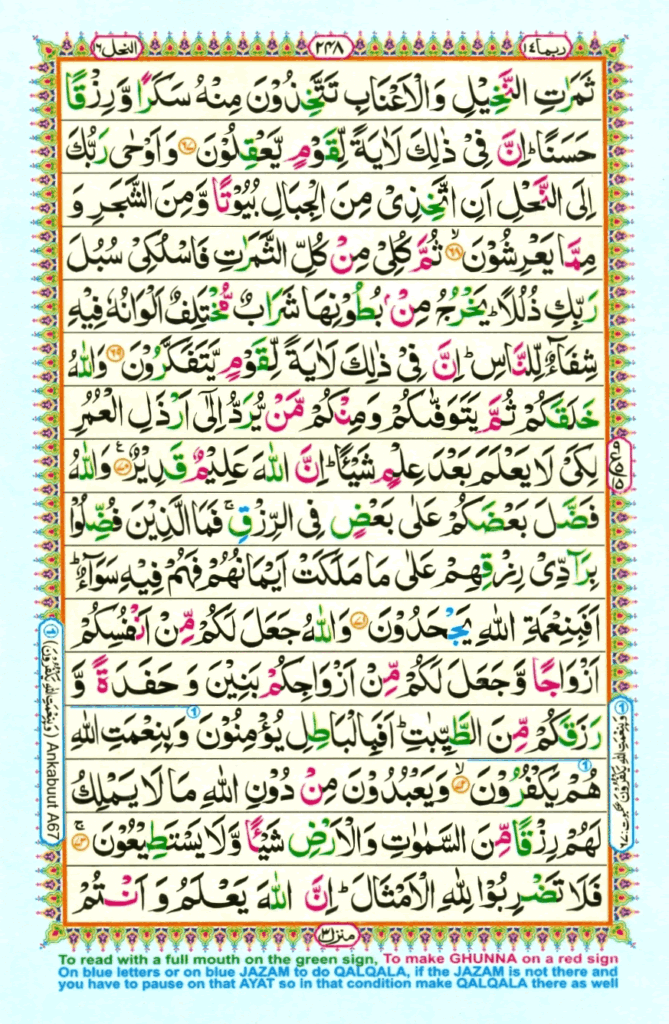 النحل ١٦
٢٤٨
ربما ١٤
ثَمَرٰتِ النَّخِيْلِ وَالْاَعْنَابِ تَتَّخِذُوْنَ مِنْهُ سَكَرًا وَّرِزْقًا
حَسَنًا ؕ اِنَّ فِیْ ذٰلِكَ لَاٰيَةً لِّقَوْمٍ يَّعْقِلُوْنَ ﴿۶۷﴾ وَاَوْحٰی رَبُّكَ
اِلَی النَّحْلِ اَنِ اتَّخِذِیْ مِنَ الْجِبَالِ بُيُوْتًا وَّمِنَ الشَّجَرِ وَ
مِمَّا يَعْرِشُوْنَ ۙ﴿۶۸﴾ ثُمَّ كُلِیْ مِنْ كُلِّ الثَّمَرٰتِ فَاسْلُكِیْ سُبُلَ
رَبِّكِ ذُلُلًا ؕ يَخْرُجُ مِنْۢ بُطُوْنِهَا شَرَابٌ مُّخْتَلِفٌ اَلْوَانُهٗ فِيْهِ
شِفَآءٌ لِّلنَّاسِ ؕ اِنَّ فِیْ ذٰلِكَ لَاٰيَةً لِّقَوْمٍ يَّتَفَكَّرُوْنَ ﴿۶۹﴾ وَاللّٰهُ
خَلَقَكُمْ ثُمَّ يَتَوَفّٰىكُمْ وَمِنْكُمْ مَّنْ يُّرَدُّ اِلٰۤی اَرْذَلِ الْعُمُرِ
لِكَیْ لَا يَعْلَمَ بَعْدَ عِلْمٍ شَيْـًٔا ؕ اِنَّ اللّٰهَ عَلِيْمٌ قَدِيْرٌ ﴿۷۰﴾ وَاللّٰهُ
فَضَّلَ بَعْضَكُمْ عَلٰی بَعْضٍ فِی الرِّزْقِ ۚ فَمَا الَّذِيْنَ فُضِّلُوْا
بِرَآدِّیْ رِزْقِهِمْ عَلٰی مَا مَلَكَتْ اَيْمَانُهُمْ فَهُمْ فِيْهِ سَوَآءٌ ؕ
اَفَبِنِعْمَةِ اللّٰهِ يَجْحَدُوْنَ ﴿۷۱﴾ وَاللّٰهُ جَعَلَ لَكُمْ مِّنْ اَنْفُسِكُمْ
اَزْوَاجًا وَّجَعَلَ لَكُمْ مِّنْ اَزْوَاجِكُمْ بَنِيْنَ وَحَفَدَةً وَّ
رَزَقَكُمْ مِّنَ الطَّيِّبٰتِ ؕ اَفَبِالْبَاطِلِ يُؤْمِنُوْنَ وَبِنِعْمَتِ اللّٰهِ
هُمْ يَكْفُرُوْنَ ۙ﴿۷۲﴾ وَيَعْبُدُوْنَ مِنْ دُوْنِ اللّٰهِ مَا لَا يَمْلِكُ
لَهُمْ رِزْقًا مِّنَ السَّمٰوٰتِ وَالْاَرْضِ شَيْـًٔا وَّلَا يَسْتَطِيْعُوْنَ ۚ﴿۷۳﴾
فَلَا تَضْرِبُوْا لِلّٰهِ الْاَمْثَالَ ؕ اِنَّ اللّٰهَ يَعْلَمُ وَاَنْتُمْ
① (وَبِنِعْمَةِ اللّٰهِ يَكْفُرُوْنَ) Ankabuut A67
منزل ٣
To read with a full mouth on the green sign, To make GHUNNA on a red sign
On blue letters or on blue JAZAM to do QALQALA, if the JAZAM is not there and
you have to pause on that AYAT so in that condition make QALQALA there as well